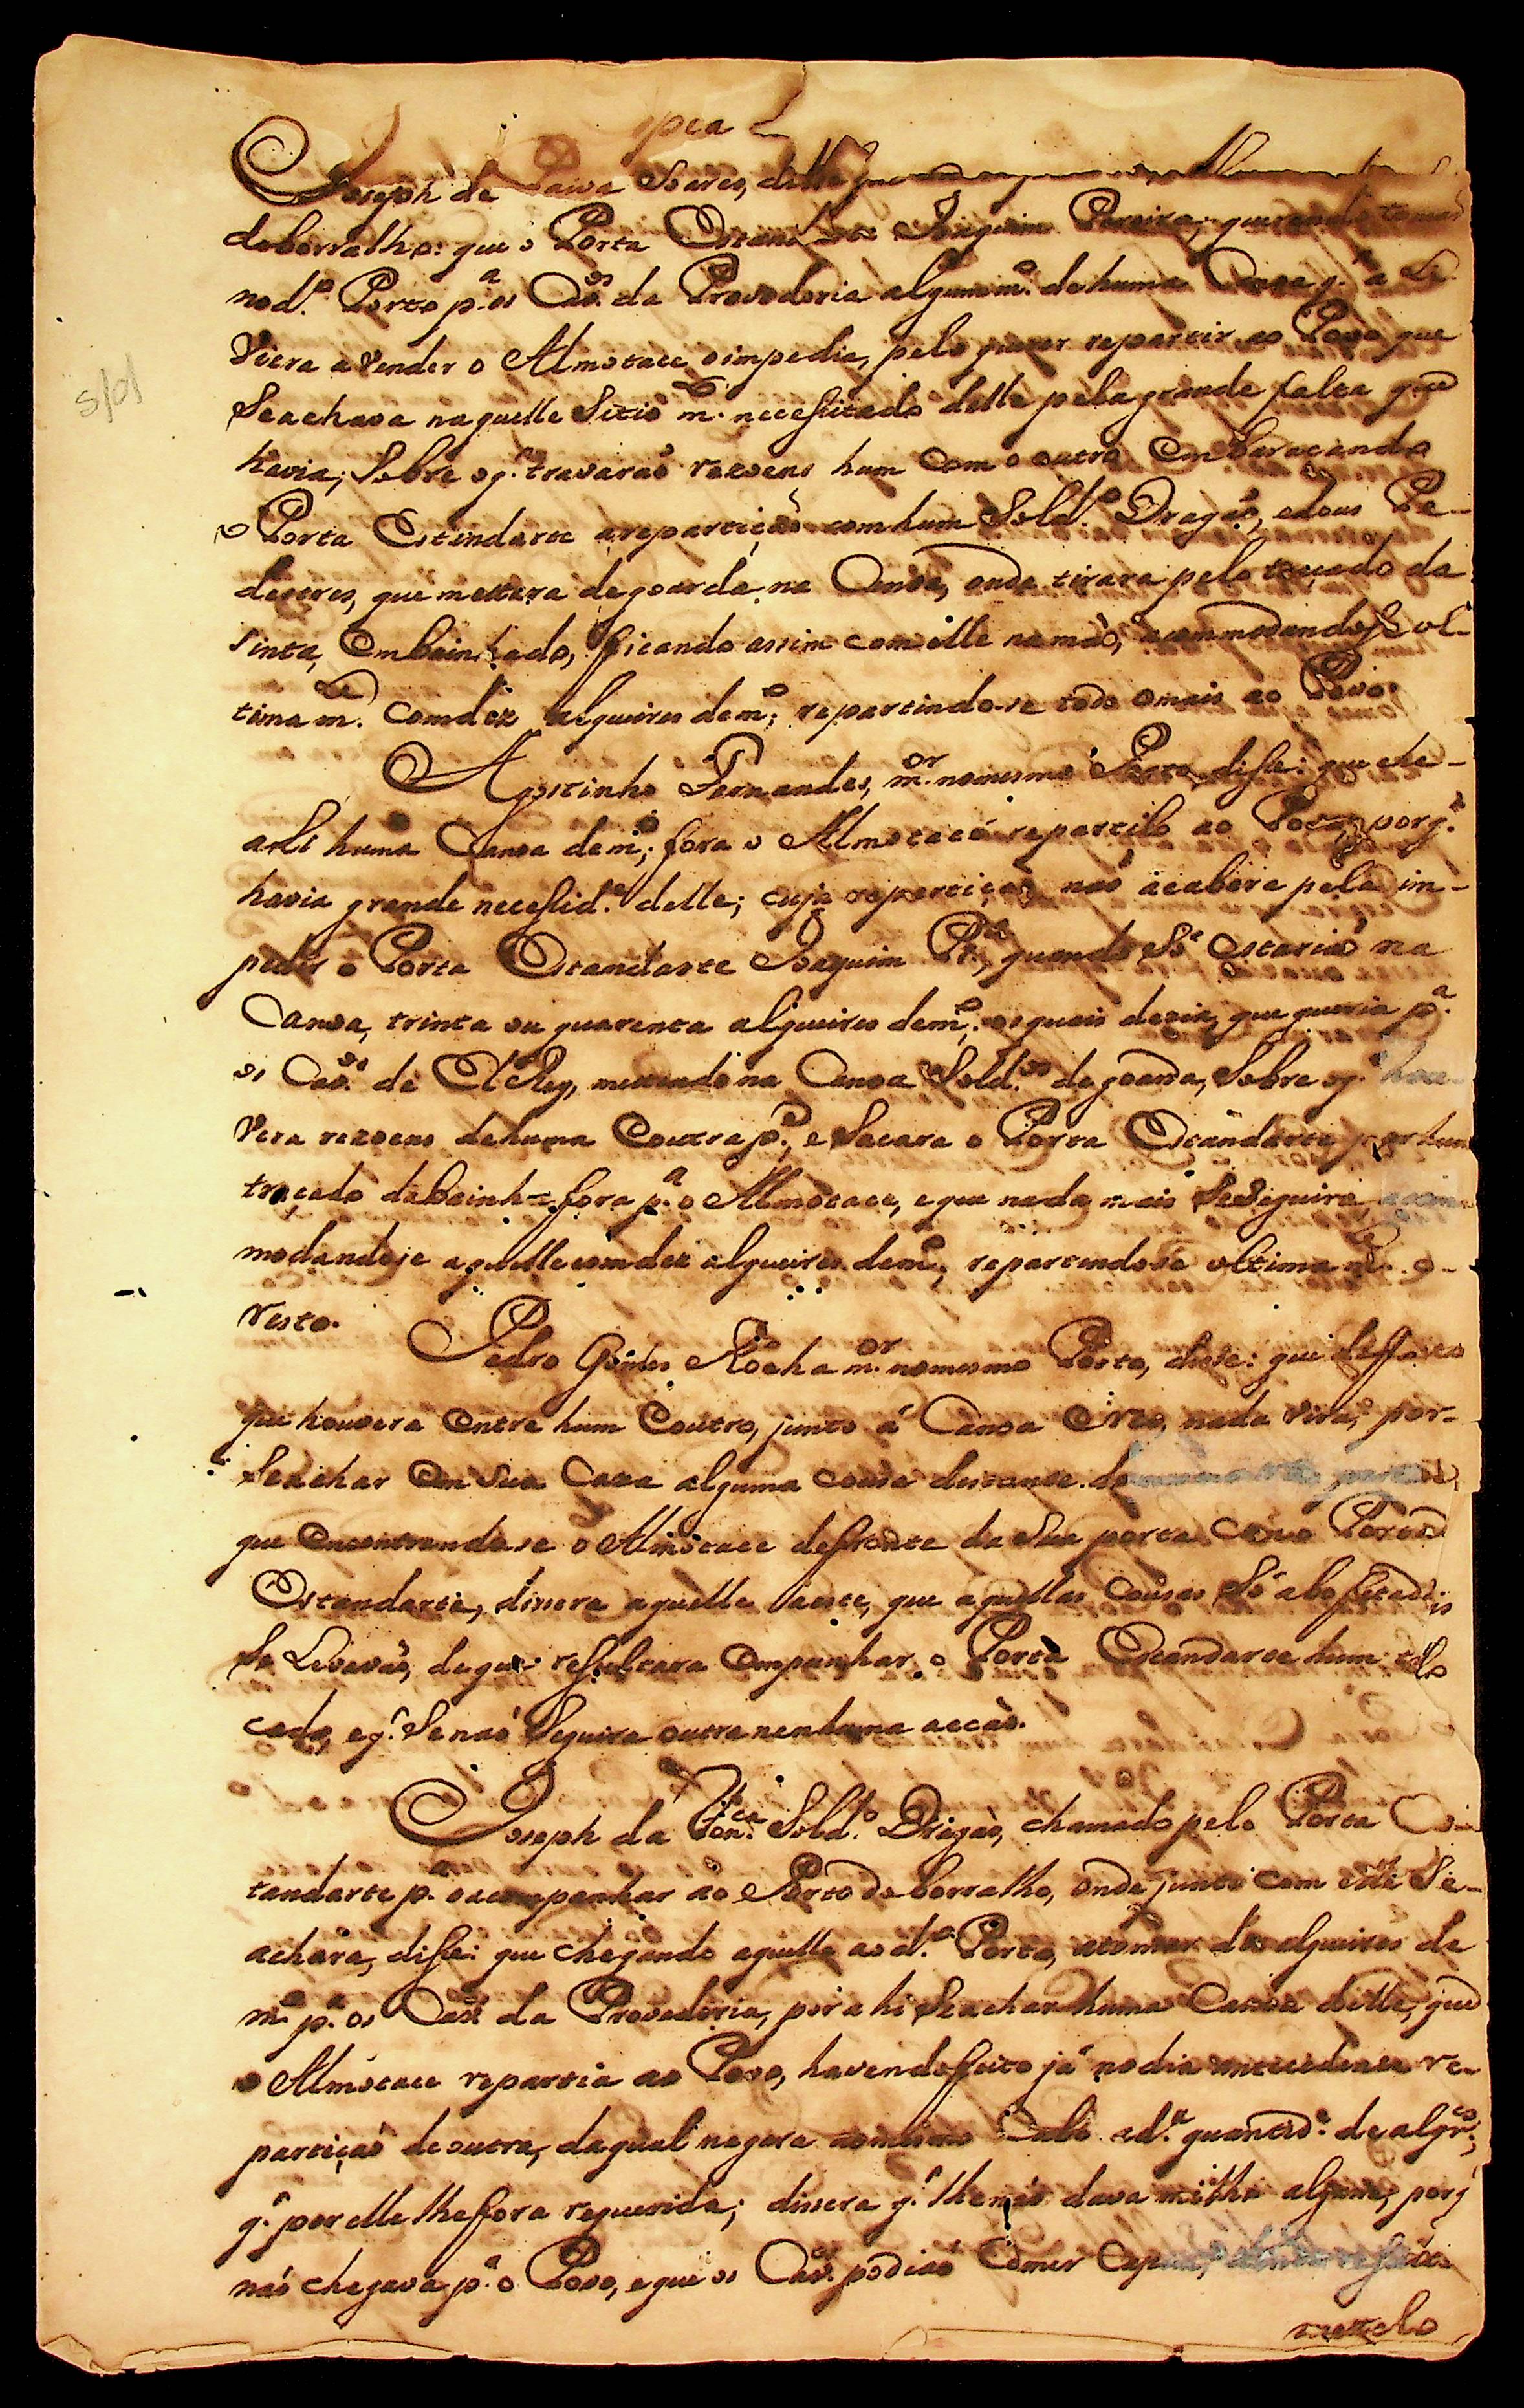 Copea
Joseph de Paiva Soares, disse
do borralho: que o Porta Estandarte Joaquim Pereira, querendo tomar
no d.º Porto p.ª os Cav.os da Provedoria algum m.º de huma Canoa q.' a elle
viera a vender o Almotace o impedia, pelo querer repartir ao Povo que
se achava naquelle Sitio m.to necessitado delle pela grande falta que
havia; Sobre o q.' travaraõ rezoens hum com o outro Embaraçando
o Porta Estendarte a repartiçaõ com hum Sold.º Dragaõ, e dous Pe-
destres, que mettera de goarda na Canoa, onde tirara pelo traçado da
Sinta, Embainhado, ficando assim com elle na maõ, acommodandose ul-
tima m.te com dez alqueires de m.º; repartindo-se todo o mais ao Povo.
Agostinho Fernandes, m.or no mesmo Porto, disse: que che-
ando huma Canoa de m.º; fora o Almotacé repartilo ao Povo, porq.'
havia grande necessid.e delle; cuja repartiçaõ, naõ acabara pela im-
pedir o Porta Estandarte Joaquim Pr.ª, quando Só estariaõ na
Canoa, trinta ou quarenta alqueires de m.º; os quais dezia, que queria p.ª
os Cav.os de El Rey, mettendo na Canoa Sold.os de goarda, Sobre o q.' hou-
vera rezoens de huma e outra p.e, e Sacara o Porta Estandarte por hum
traçado da bainha fora p.ª o Almotace, e que nada mais Se Seguira, acom-
modandose aquelle com dez alqueires de m.º; repartindose ultima m.te o
resto.
Pedro Gomes Rocha m.or no mesmo Porto, disse: que do facto
que houvera Entre hum e outro, junto á Canoa e rio, nada vira; por-
Se achar Em Sua Caza alguma couza distante
que Encontrandose o Almotace defronte da Sua porta com o Porta
Estandarte, dissera aquelle a este, que aquellas Couzas Só a bofetadas
Se Levavaõ, de que resultara Empunhar o Porta Estandarte hum tra-
cado, e q.' Se naõ Seguira outra nenhuma accaõ.
Joseph da Fon.ca Sold.º Dragaõ, chamado pelo Porta Es-
tandarte p.ª o acompanhar ao Porto do borralho, onde junto com elle Se-
achara, disse: que chegando aquelle ao d.º Porto, a tomar dés alqueires de
m.º p.ª os Cav.os da Provedoria, por ahi Se achar huma Canoa delle, que
o Almotace repartia ao Povo, havendo feito já no dia antecedente re-
partiçaõ de outra, da qual negara ao mesmo Cabo a d.ª quantid.e de alqr.es;
q.' por elle lhe fora requerida; dissera q.' lhe naõ dava milho algum, porq'
naõ chegava p.ª o Povo, e que os Cav.os podiaõ Comer Capim,